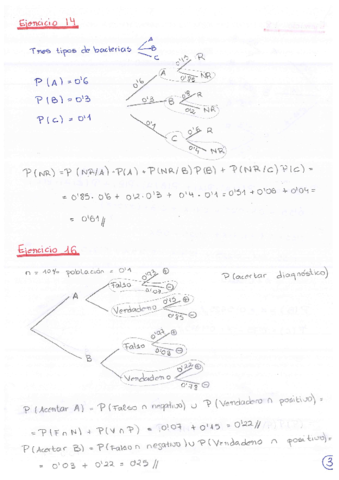 Ejercicio 14
Tres tipos de bacterias
A
B
C
P(A) = 0'6
P(B) = 0'3
P(C) = 0'1
0'6
0'3
0'1
A
B
C
0'15 R
0'85 NR
0'8 R
0'2 NR
0'6 R
0'4 NR
P(NR) = P(NR/A)·P(A) + P(NR/B) P(B) + P(NR/C) P(C) =
= 0'85·0'6 + 0'2·0'3 + 0'4·0'1 = 0'51 + 0'06 + 0'04 =
= 0'61 //
Ejercicio 16
n = 10% población = 0'1
P(acertar diagnóstico)
A
Falso
⊕
0'07 ⊖
Verdadero
0'15 ⊕
⊖
B
Falso
⊕
⊖
Verdadero
0'22 ⊕
⊖
P(Acertar A) = P(Falso ∩ negativo) ∪ P(Verdadero ∩ positivo) =
= P(F∩N) + P(V∩P) = 0'07 + 0'15 = 0'22 //
P(Acertar B) = P(Falso ∩ negativo) ∪ P(Verdadero ∩ positivo) =
= 0'03 + 0'22 = 025 //
3